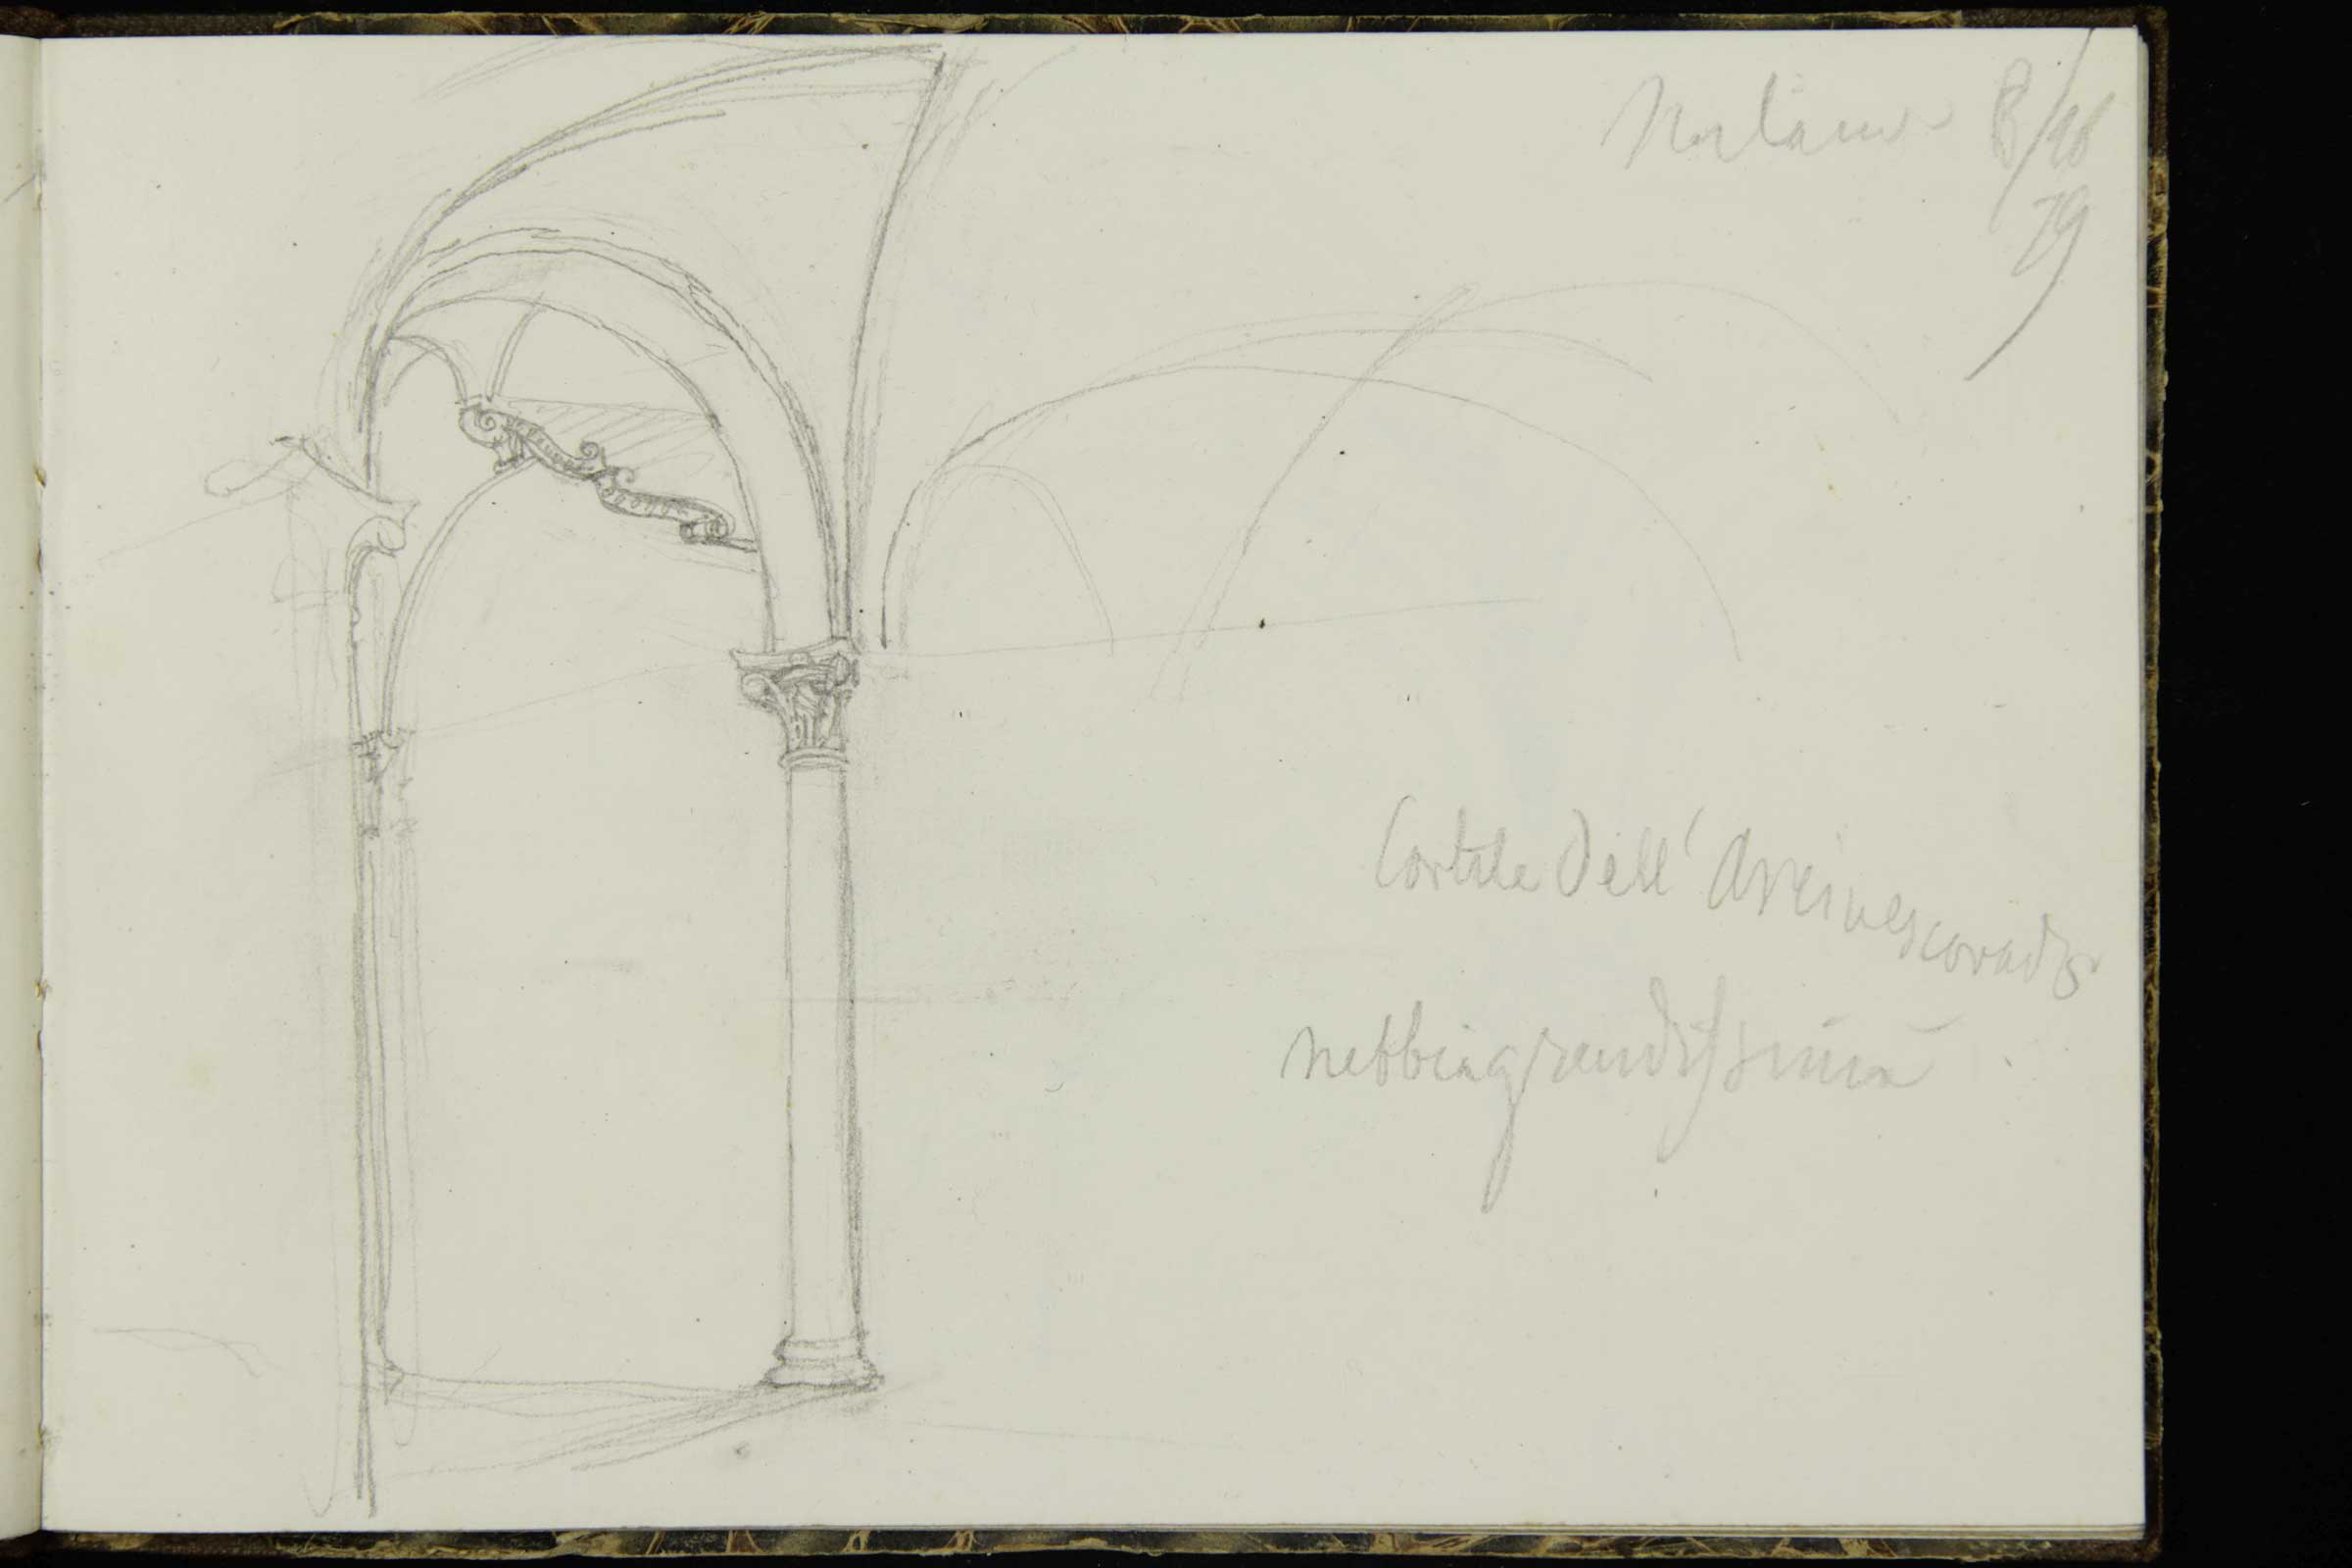 Milano 8/10
79
Cortile dell' Arcivescovado
nebbia grandissima